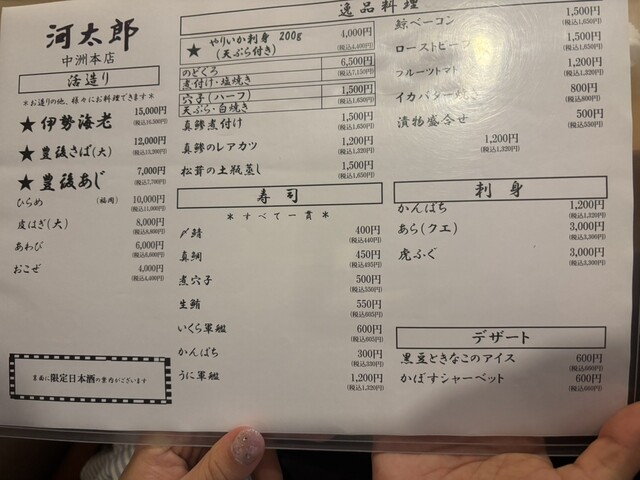 河太郎
中洲本店
活造り
*お造りの他、様々にお料理できます*
★伊勢海老 15,000円
(税込16,500円)
★豊後さば(大) 12,000円
(税込13,200円)
★豊後あじ 7,000円
(税込7,700円)
ひらめ (福岡) 10,000円
(税込11,000円)
皮はぎ(大) 8,000円
(税込8,800円)
あわび 6,000円
(税込6,600円)
おこぜ 4,000円
(税込4,400円)
裏面に限定日本酒の案内がございます
逸品料理
★ やりいか刺身 200g 4,000円
(天ぷら付き) (税込4,400円)
のどぐろ 6,500円
煮付け・塩焼き (税込7,150円)
穴子(ハーフ) 1,500円
天ぷら・白焼き (税込1,650円)
真鯵煮付け 1,500円
(税込1,650円)
真鯵のレアカツ 1,200円
(税込1,320円)
松茸の土瓶蒸し 1,500円
(税込1,650円)
鯨ベーコン 1,500円
(税込1,650円)
ローストビーフ 1,500円
(税込1,650円)
フルーツトマト 1,200円
(税込1,320円)
イカバター焼き 800円
(税込880円)
漬物盛合せ 500円
(税込550円)
1,200円
(税込1,320円)
寿司
*すべて一貫*
〆鯖 400円
(税込440円)
真鯛 450円
(税込495円)
煮穴子 500円
(税込550円)
生鮪 550円
(税込605円)
いくら軍艦 600円
(税込660円)
かんぱち 300円
(税込330円)
うに軍艦 1,200円
(税込1,320円)
刺身
かんぱち 1,200円
(税込1,320円)
あら(クエ) 3,000円
(税込3,300円)
虎ふぐ 3,000円
(税込3,300円)
デザート
黒豆ときなこのアイス 600円
(税込660円)
かぼすシャーベット 600円
(税込660円)